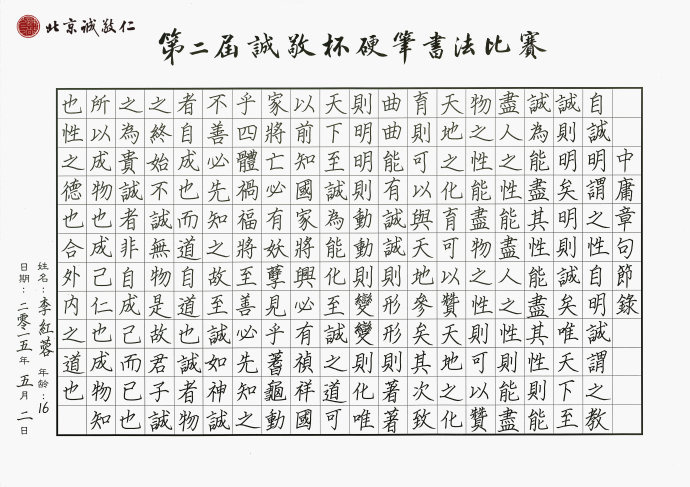 北京誠敬仁
第二屆誠敬杯硬筆書法比賽
中庸章句節錄
自誠明謂之性自明誠謂之教
誠則明矣明則誠矣唯天下至
誠為能盡其性能盡其性則能
盡人之性能盡人之性則能盡
物之性能盡物之性則可以贊
天地之化育可以贊天地之化
育則可以與天地參矣其次致
曲曲能有誠誠則形形則著著
則明明則動動則變變則化唯
天下至誠為能化至誠之道可
以前知國家將興必有禎祥國
家將亡必有妖孽見乎蓍龜動
乎四體禍福將至善必先知之
不善必先知之故至誠如神誠
者自成也而道自道也誠者物
之終始不誠無物是故君子誠
之為貴誠者非自成己而已也
所以成物也成己仁也成物知
也性之德也合外內之道也
姓名：李紅蓉 年齡：16
日期：二零一五年五月二日